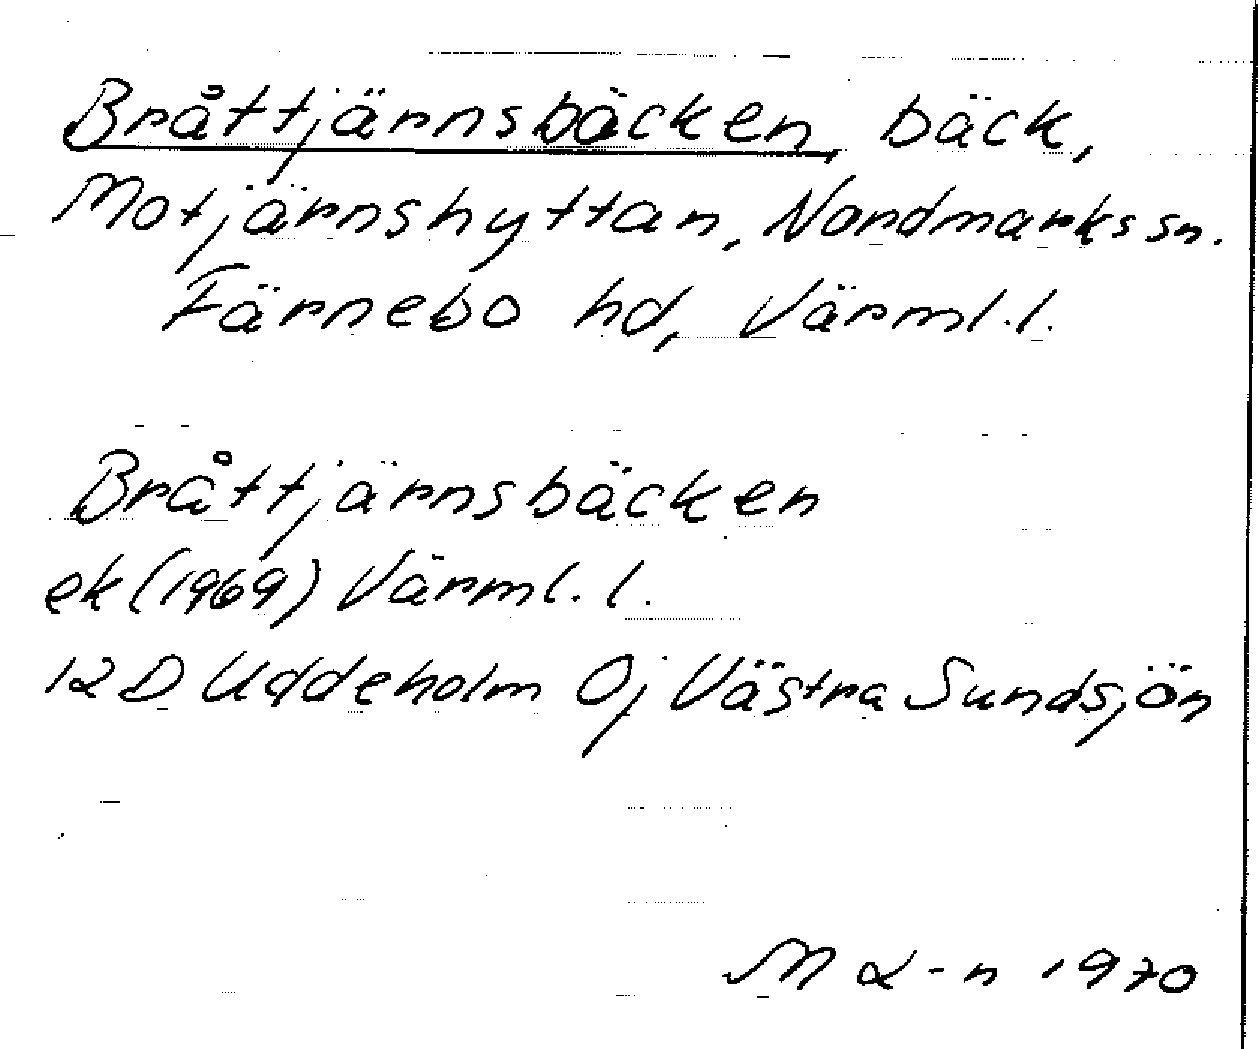 Bråttjärnsbäcken, bäck,
Motjärnshyttan, Nordmarks sn.
Färnebo hd, Värml. l.
Bråttjärnsbäcken
ek (1969) Värml. l.
12 D Uddeholm 0j Västra Sundsjön
1970